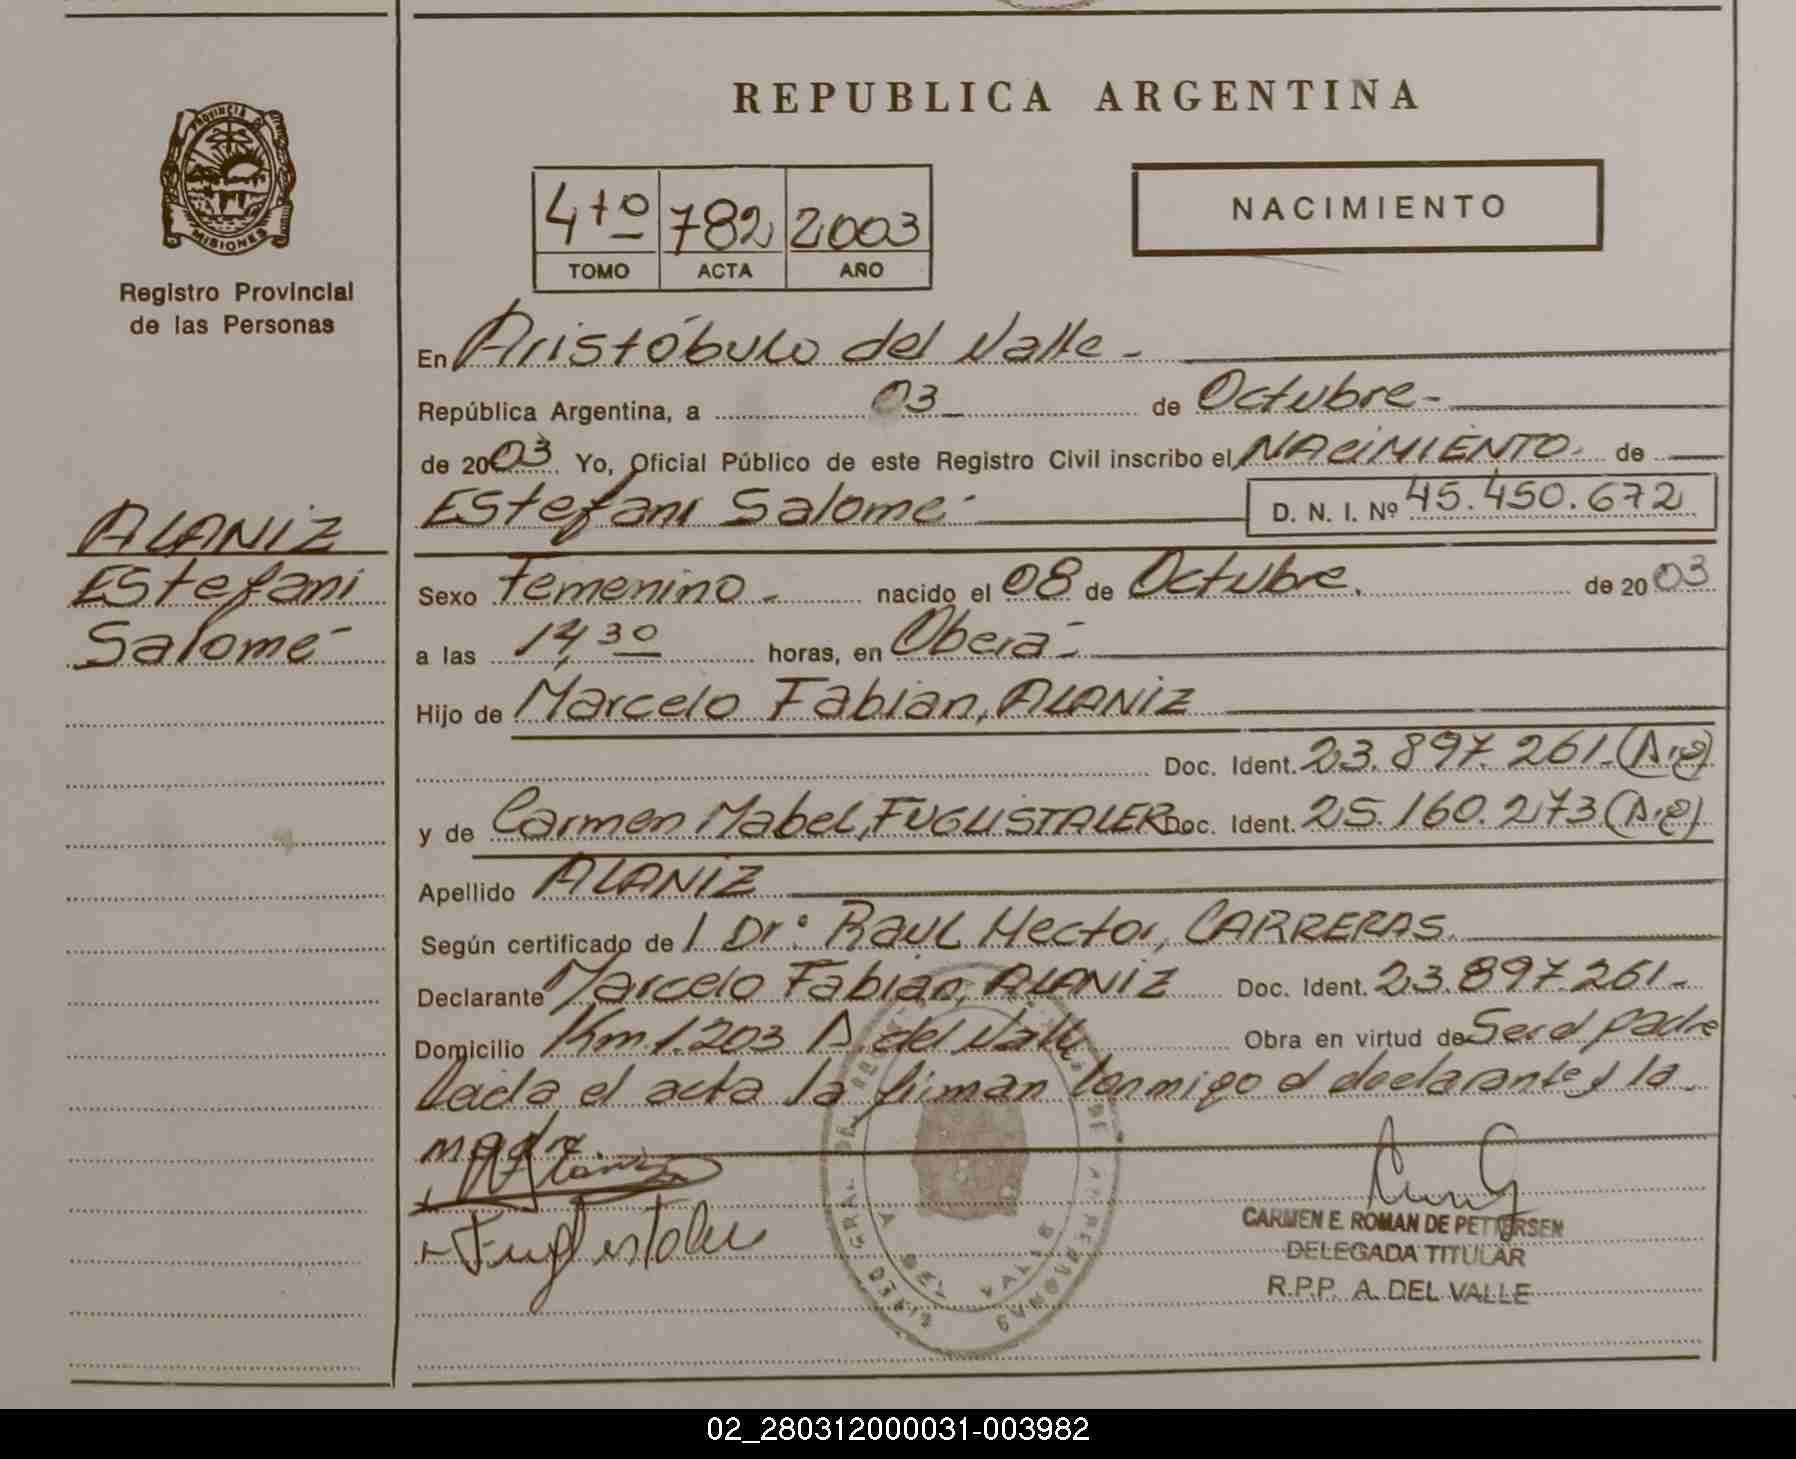 REPUBLICA ARGENTINA
PROVINCIA DE
MISIONES
Registro Provincial
de las Personas
4to 782 2003
TOMO ACTA AÑO
NACIMIENTO
En Aristóbulo del Valle -
República Argentina, a 03 de Octubre -
de 2003 Yo, Oficial Público de este Registro Civil inscribo el NACIMIENTO de
Estefani Salomé
D. N. I. Nº 45.450.672
ALANIZ
Estefani
Salomé
Sexo Femenino - nacido el 08 de Octubre. de 2003
a las 14,30 horas, en Oberá
Hijo de Marcelo Fabian, ALANIZ
Doc. Ident. 23.897.261-
y de Carmen Mabel, FUGLISTALER Doc. Ident. 25.160.273
Apellido ALANIZ
Según certificado de / Dr. Raul Hector, CARRERAS.
Declarante Marcelo Fabian, ALANIZ Doc. Ident. 23.897.261-
Domicilio Km.1.203 A. del Valle Obra en virtud de Ser el padre
Leída el acta la firman conmigo el declarante y la
madre
CARMEN E. ROMAN DE PETTERSEN
DELEGADA TITULAR
R.P.P. A. DEL VALLE
02_280312000031-003982